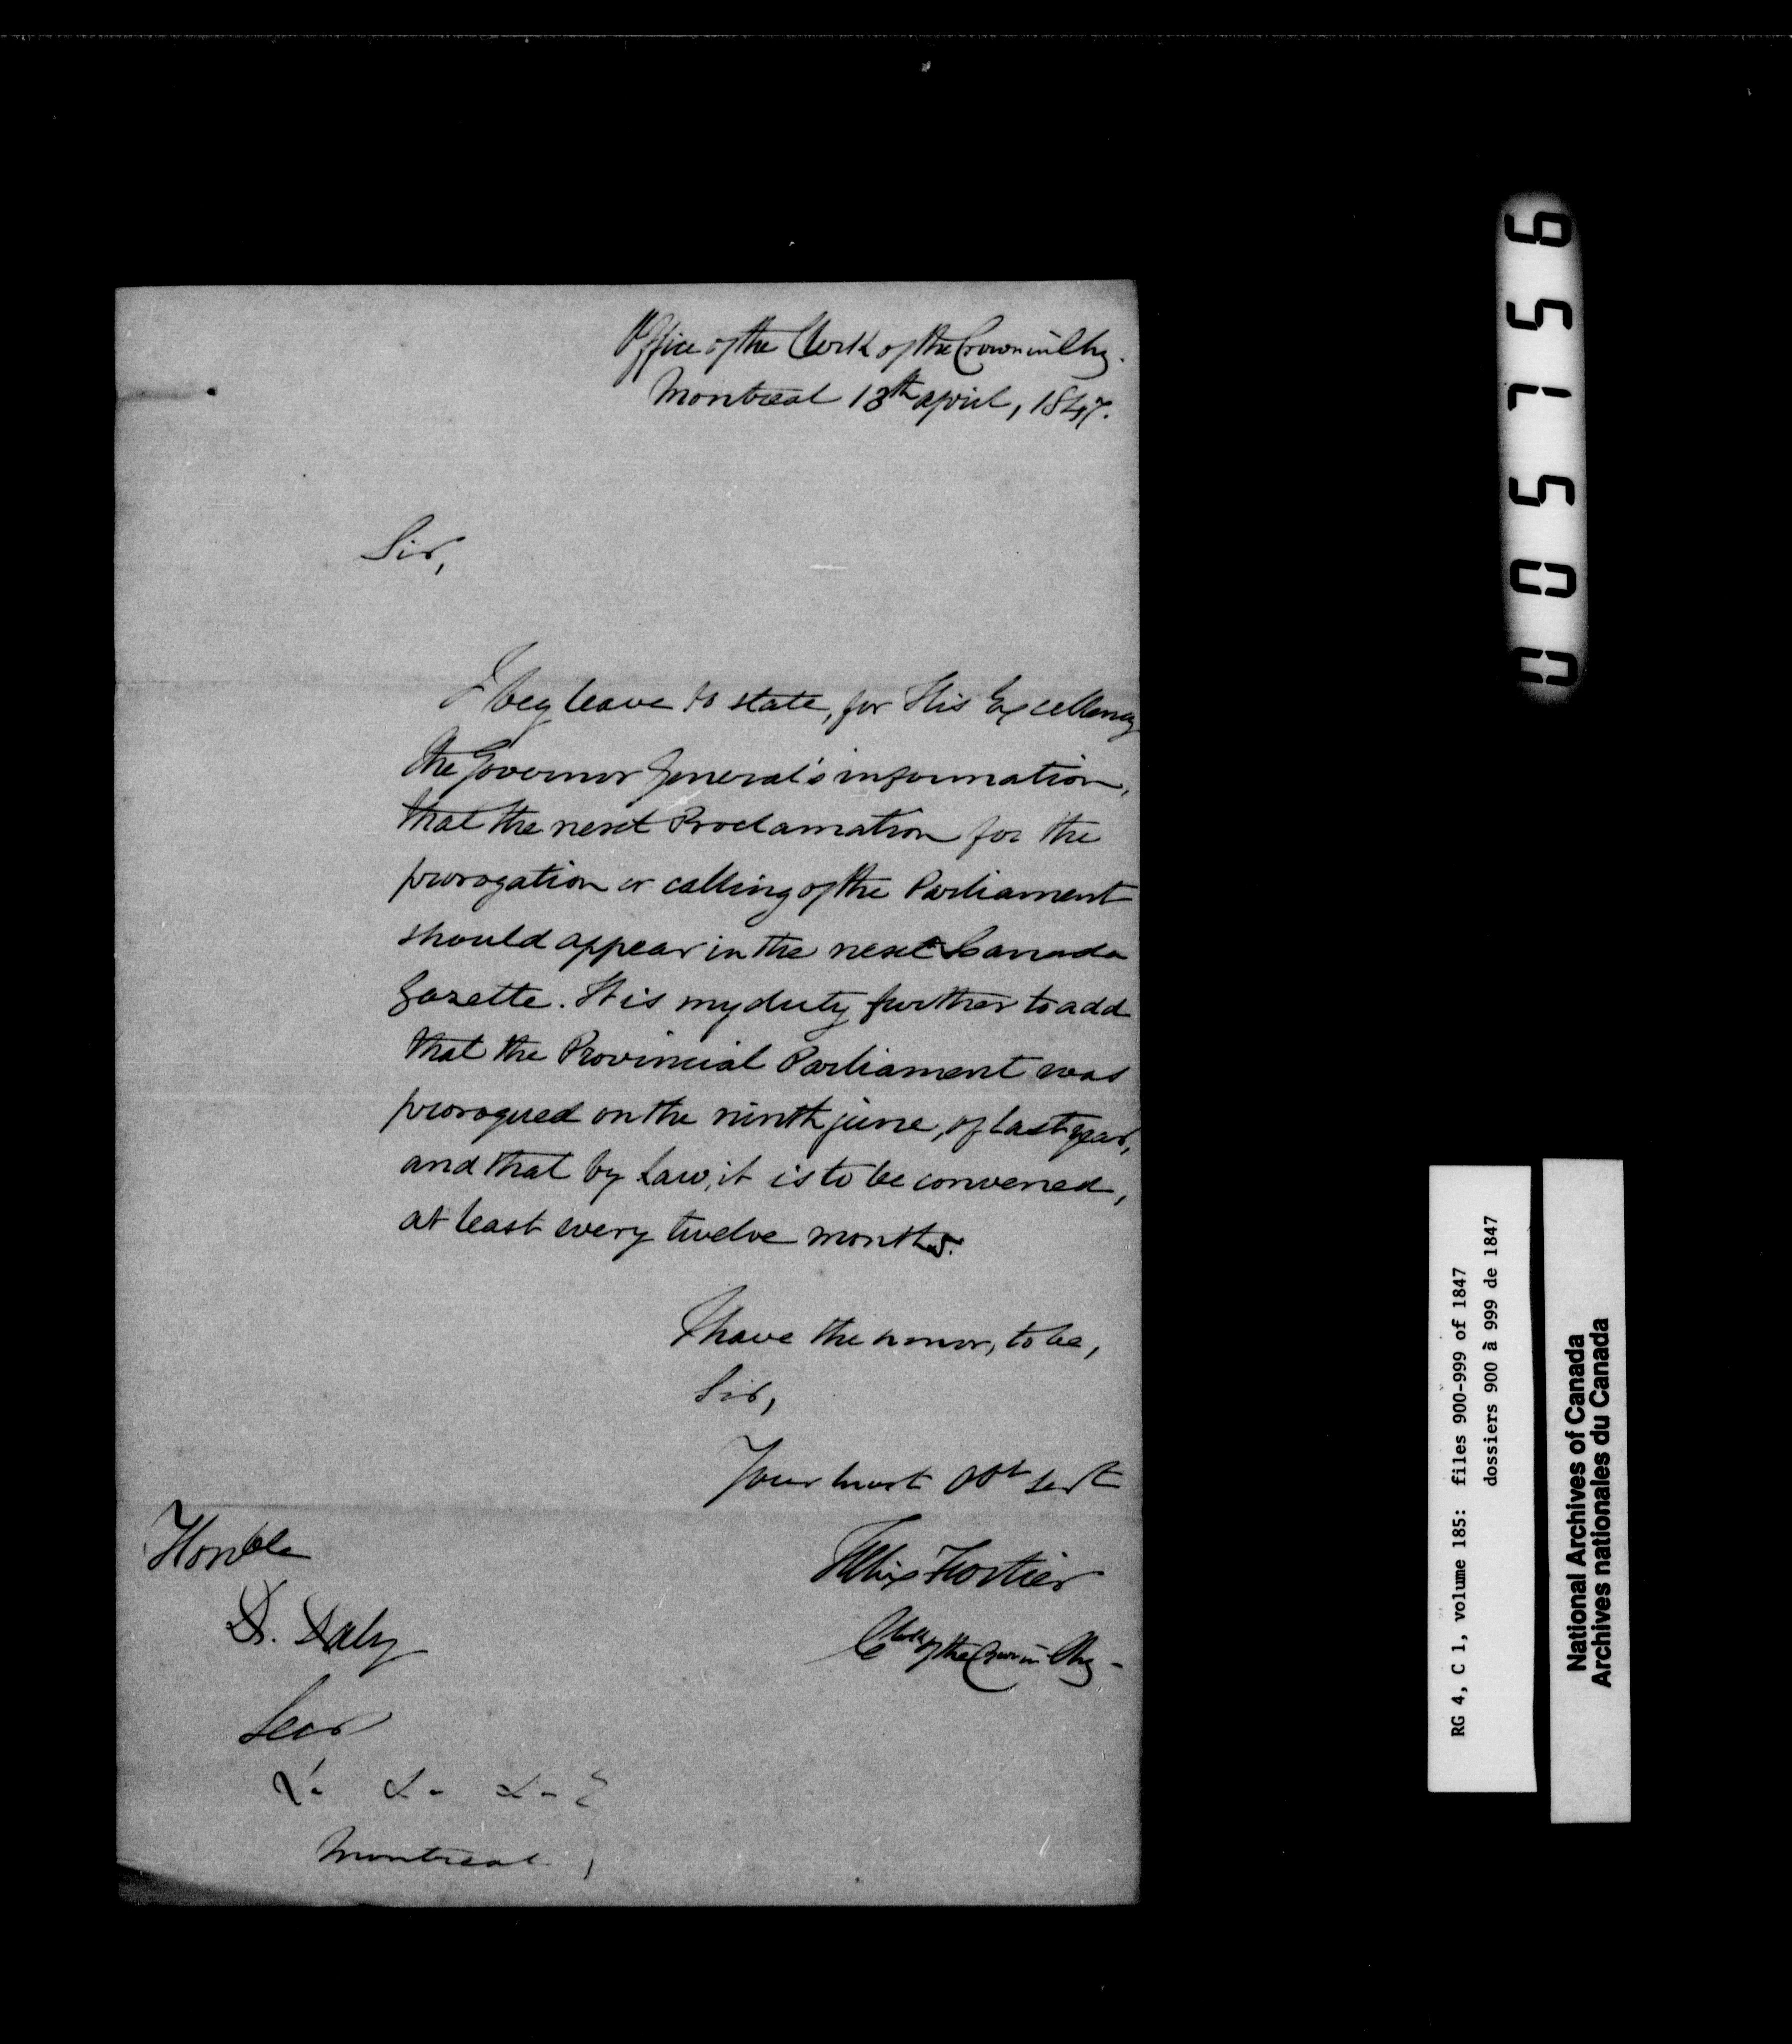 Office of the Clerk of the Crown in Chy.
Montreal 13th april, 1847.
Sir,
I beg leave to state, for His Excellency
the Governor General's information,
that the next Proclamation for the
prorogation or calling of the Parliament
should appear in the next Canada
Gazette. It is my duty further to add
that the Provincial Parliament was
prorogued on the ninth june, of last year,
and that by Law, it is to be convened,
at least every twelve months.
I have the honor, to be,
Sir,
Your most Obt Servt
Félix Fortier
Clk of the Crown in Chy -
Honble
D. Daly
Secr
&. &. &.
Montreal
005156
RG 4, C 1, volume 185: files 900-999 of 1847
dossiers 900 à 999 de 1847
National Archives of Canada
Archives nationales du Canada